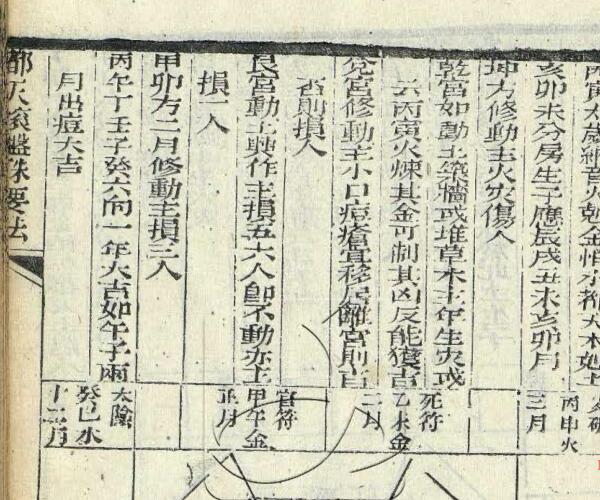 丙寅太歲納音火剋金怕水都天木妙土
亥卯未分房生子應辰戌丑未亥卯月
坤方修動主火災傷人
乾宮如動土築牆或堆草木主年生災或
云丙寅火煉其金可制其凶反能獲吉
兌宮修動主小口痘瘡宜移居離宮則吉
否則損人
艮宮動土興作主損五六人卽不動亦主
損一人
甲卯方二月修動主損三人
丙午丁壬子癸六向一年大吉如午子兩
月出痘大吉
都天滾盤珠要法
丙申火
三月
死符
乙未金
二月
官符
甲午金
正月
太陰
癸巳水
十二月